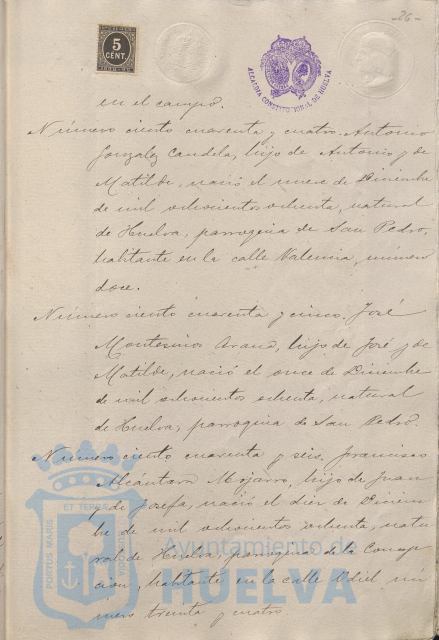 -26-
5
CENT.
ALCALDIA CONSTITUCIONAL DE HUELVA
en el campo.
Número ciento cuarenta y cuatro. Antonio
Gonzalez Candela, hijo de Antonio y de
Matilde, nació el nueve de Diciembre
de mil ochocientos ochenta, natural
de Huelva, parroquia de San Pedro,
habitante en la calle Valencia, número
doce.
Número ciento cuarenta y cinco. José
Montesinos Arand, hijo de José y de
Matilde, nació el once de Diciembre
de mil ochocientos ochenta, natural
de Huelva, parroquia de San Pedro.
Número ciento cuarenta y seis. Francisco
Alcántara Mojarro, hijo de Juan
y de Josefa, nació el diez de Diciem
bre de mil ochocientos ochenta, natu
ral de Huelva, parroquia de la Concep
cion, habitante en la calle Odiel, nú
mero treinta y cuatro.
ET TERRAE
PORTUS MARIS
CUSTODIA
Ayuntamiento de
HUELVA